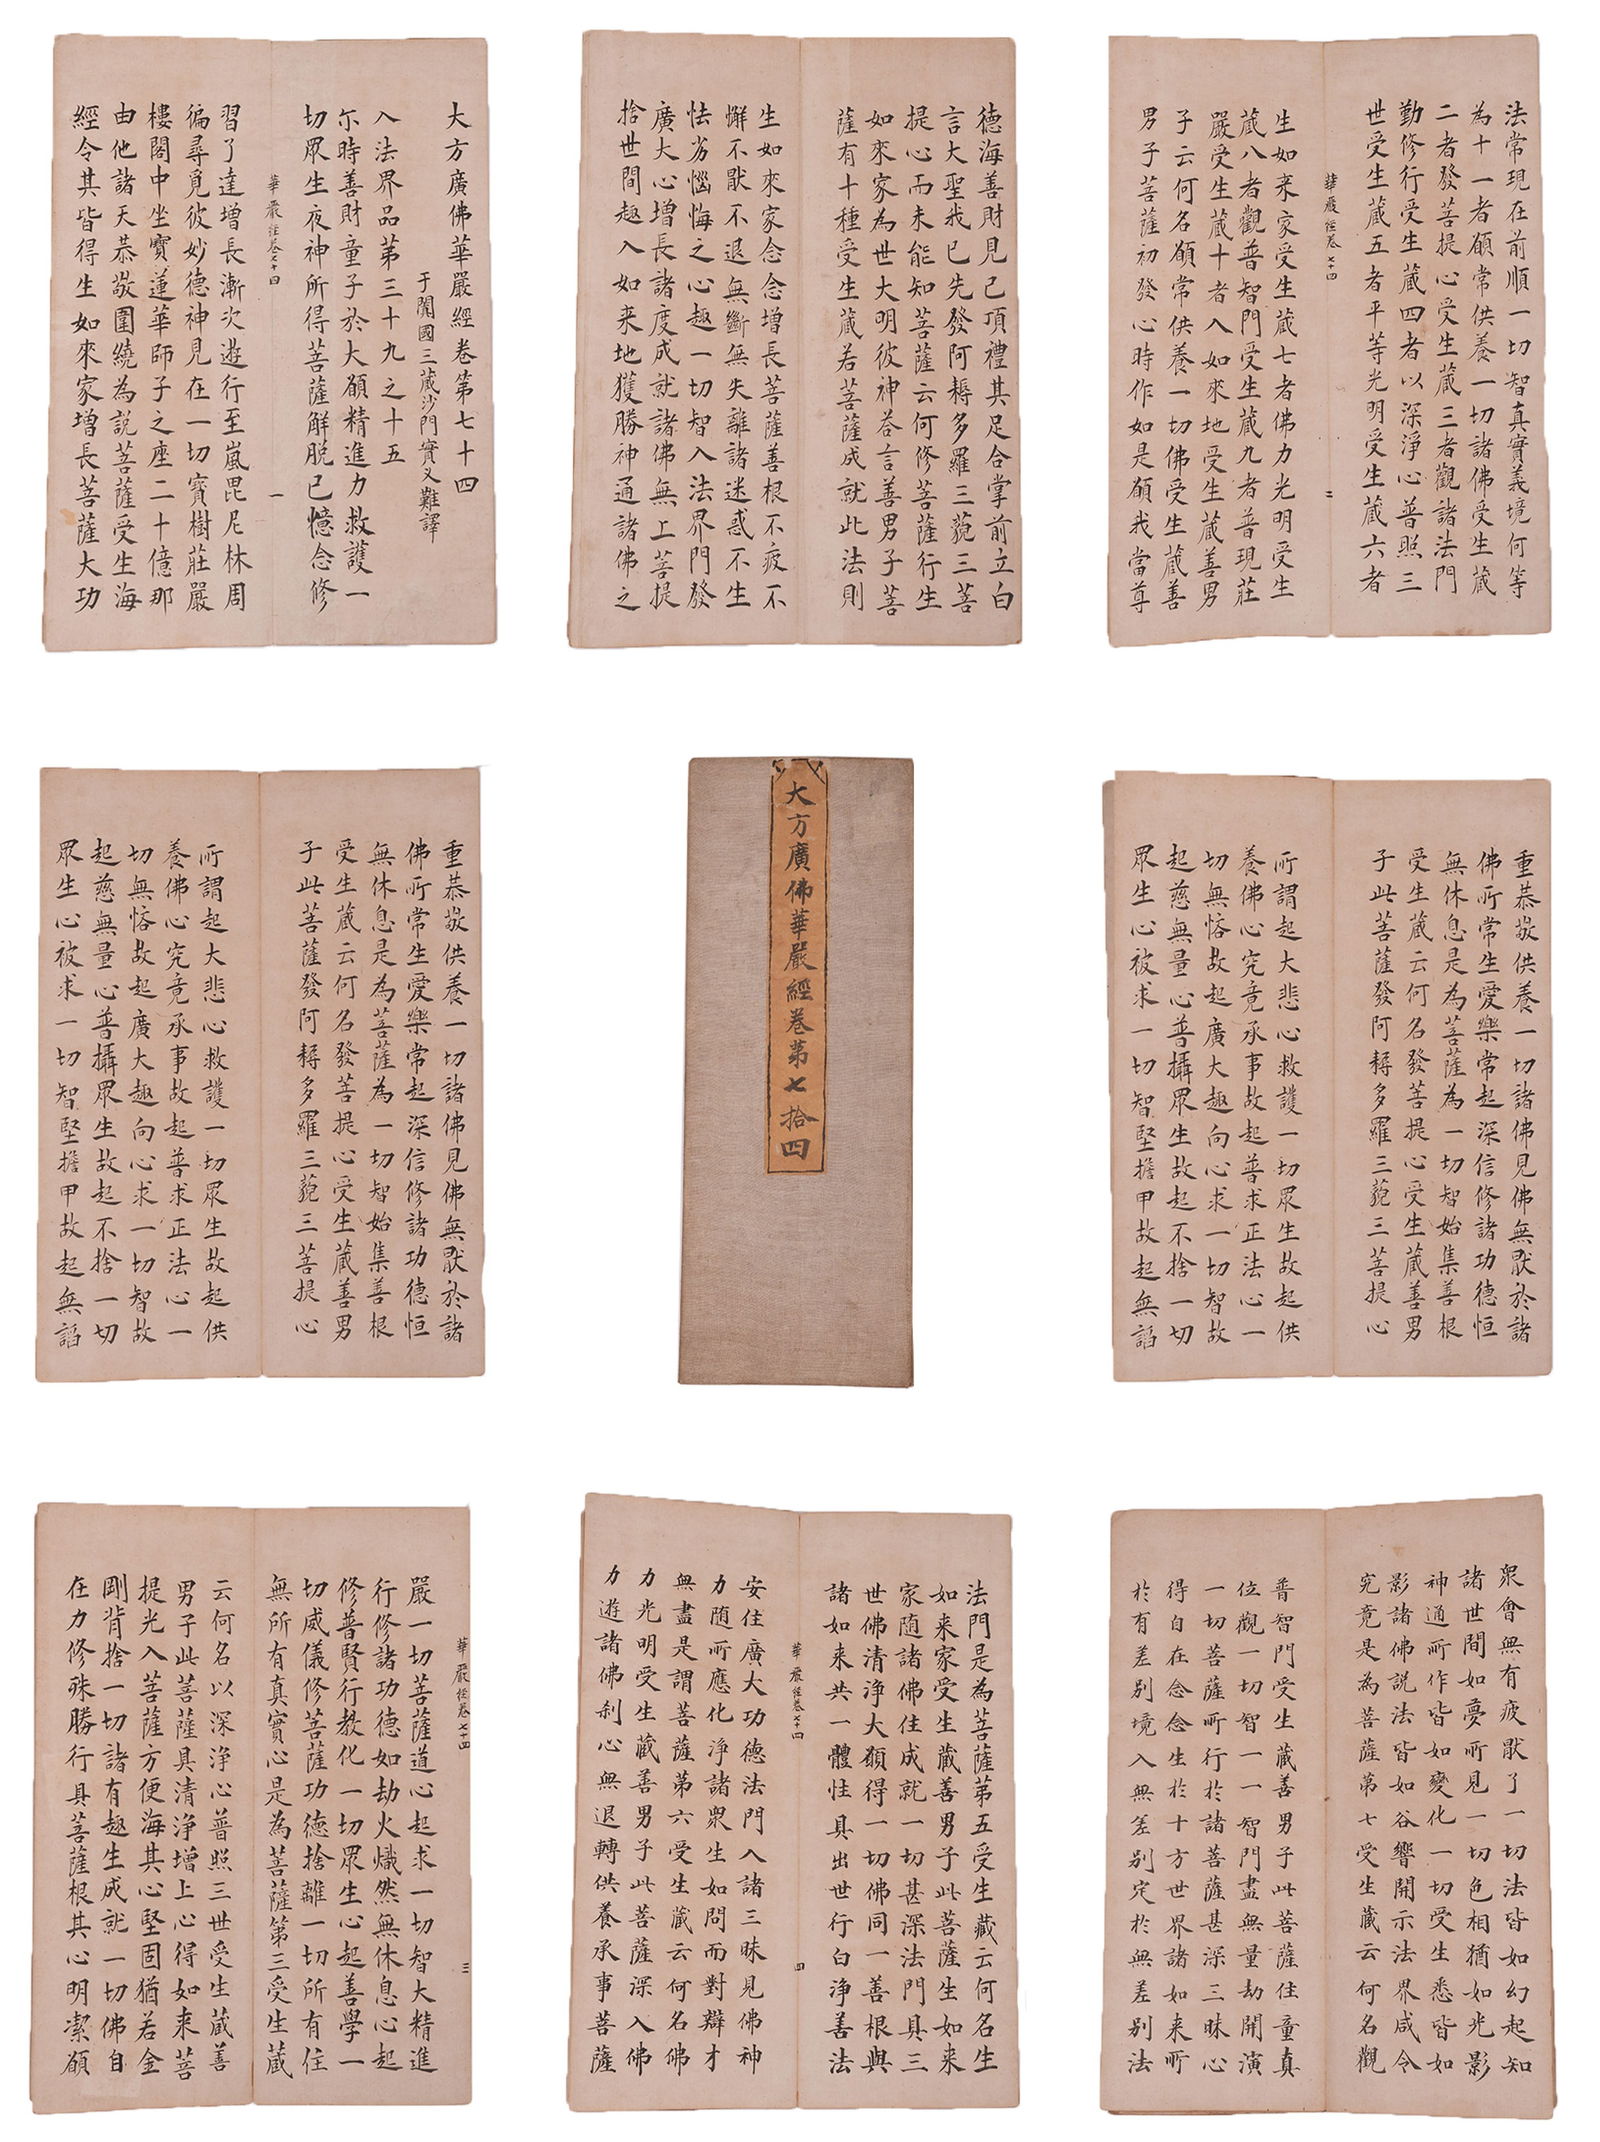 大方廣佛華嚴經卷第七十四
于闐國三藏沙門實叉難譯
入法界品第三十九之十五
尒時善財童子於大願精進力救護一
切眾生夜神所得菩薩解脫已憶念修
華嚴經卷七十四
一
習了達增長漸次遊行至嵐毘尼林周
徧尋覓彼妙德神見在一切寳樹莊嚴
樓閣中坐寳蓮華師子之座二十億那
由他諸天恭敬圍繞為説菩薩受生海
經令其皆得生如來家增長菩薩大功
德海善財見已頂禮其足合掌前立白
言大聖我已先發阿耨多羅三藐三菩
提心而未能知菩薩云何修菩薩行生
如來家為世大明彼神荅言善男子菩
薩有十種受生蔵若菩薩成就此法則
生如來家念念增長菩薩善根不疲不
懈不猒不退無斷無失離諸迷惑不生
怯劣惱悔之心趣一切智入法界門發
廣大心增長諸度成就諸佛無上菩提
捨世間趣入如来地獲勝神通諸佛之
法常現在前順一切智真實義境何等
為十一者願常供養一切諸佛受生蔵
二者發菩提心受生蔵三者觀諸法門
勤修行受生蔵四者以深淨心普照三
世受生蔵五者平等光明受生蔵六者
華嚴經卷七十四
二
生如来家受生蔵七者佛力光明受生
蔵八者觀普智門受生蔵九者普現莊
嚴受生蔵十者入如來地受生蔵善男
子云何名願常供養一切佛受生蔵善
男子菩薩初發心時作如是願我當尊
重恭敬供養一切諸佛見佛無猒於諸
佛所常生愛樂常起深信修諸功德恒
無休息是為菩薩為一切智始集善根
受生蔵云何名發菩提心受生蔵善男
子此菩薩發阿耨多羅三藐三菩提心
所謂起大悲心救護一切眾生故起供
養佛心究竟承事故起普求正法心一
切無悋故起廣大趣向心求一切智故
起慈無量心普攝眾生故起不捨一切
眾生心被求一切智堅擔甲故起無諂
大方廣佛華嚴經卷第七拾四
重恭敬供養一切諸佛見佛無猒於諸
佛所常生愛樂常起深信修諸功德恒
無休息是為菩薩為一切智始集善根
受生蔵云何名發菩提心受生蔵善男
子此菩薩發阿耨多羅三藐三菩提心
所謂起大悲心救護一切眾生故起供
養佛心究竟承事故起普求正法心一
切無悋故起廣大趣向心求一切智故
起慈無量心普攝眾生故起不捨一切
眾生心被求一切智堅擔甲故起無諂
華嚴經卷七十四
三
嚴一切菩薩道心起求一切智大精進
行修諸功德如劫火熾然無休息心起
修普賢行教化一切眾生心起善學一
切威儀修菩薩功德捨離一切所有住
無所有真實心是為菩薩第三受生蔵
云何名以深淨心普照三世受生蔵善
男子此菩薩具清淨增上心得如来菩
提光入菩薩方便海其心堅固猶若金
剛背捨一切諸有趣生成就一切佛自
在力修殊勝行具菩薩根其心明潔願
法門是為菩薩第五受生藏云何名生
如来家受生蔵善男子此菩薩生如来
家随諸佛住成就一切甚深法門具三
世佛清淨大願得一切佛同一善根與
諸如来共一體性具出世行白淨善法
華嚴經卷七十四
四
安住廣大功德法門入諸三昧見佛神
力随所應化淨諸衆生如問而對辯才
無盡是謂菩薩第六受生蔵云何名佛
力光明受生蔵善男子此菩薩深入佛
力遊諸佛刹心無退轉供養承事菩薩
衆會無有疲猒了一切法皆如幻起知
諸世間如夢所見一切色相猶如光影
神通所作皆如變化一切受生悉皆如
影諸佛説法皆如谷響開示法界咸令
究竟是為菩薩第七受生蔵云何名觀
普智門受生蔵善男子此菩薩住童真
位觀一切智一一智門盡無量劫開演
一切菩薩所行於諸菩薩甚深三昧心
得自在念念生於十方世界諸如来所
於有差别境入無差别定於無差别法